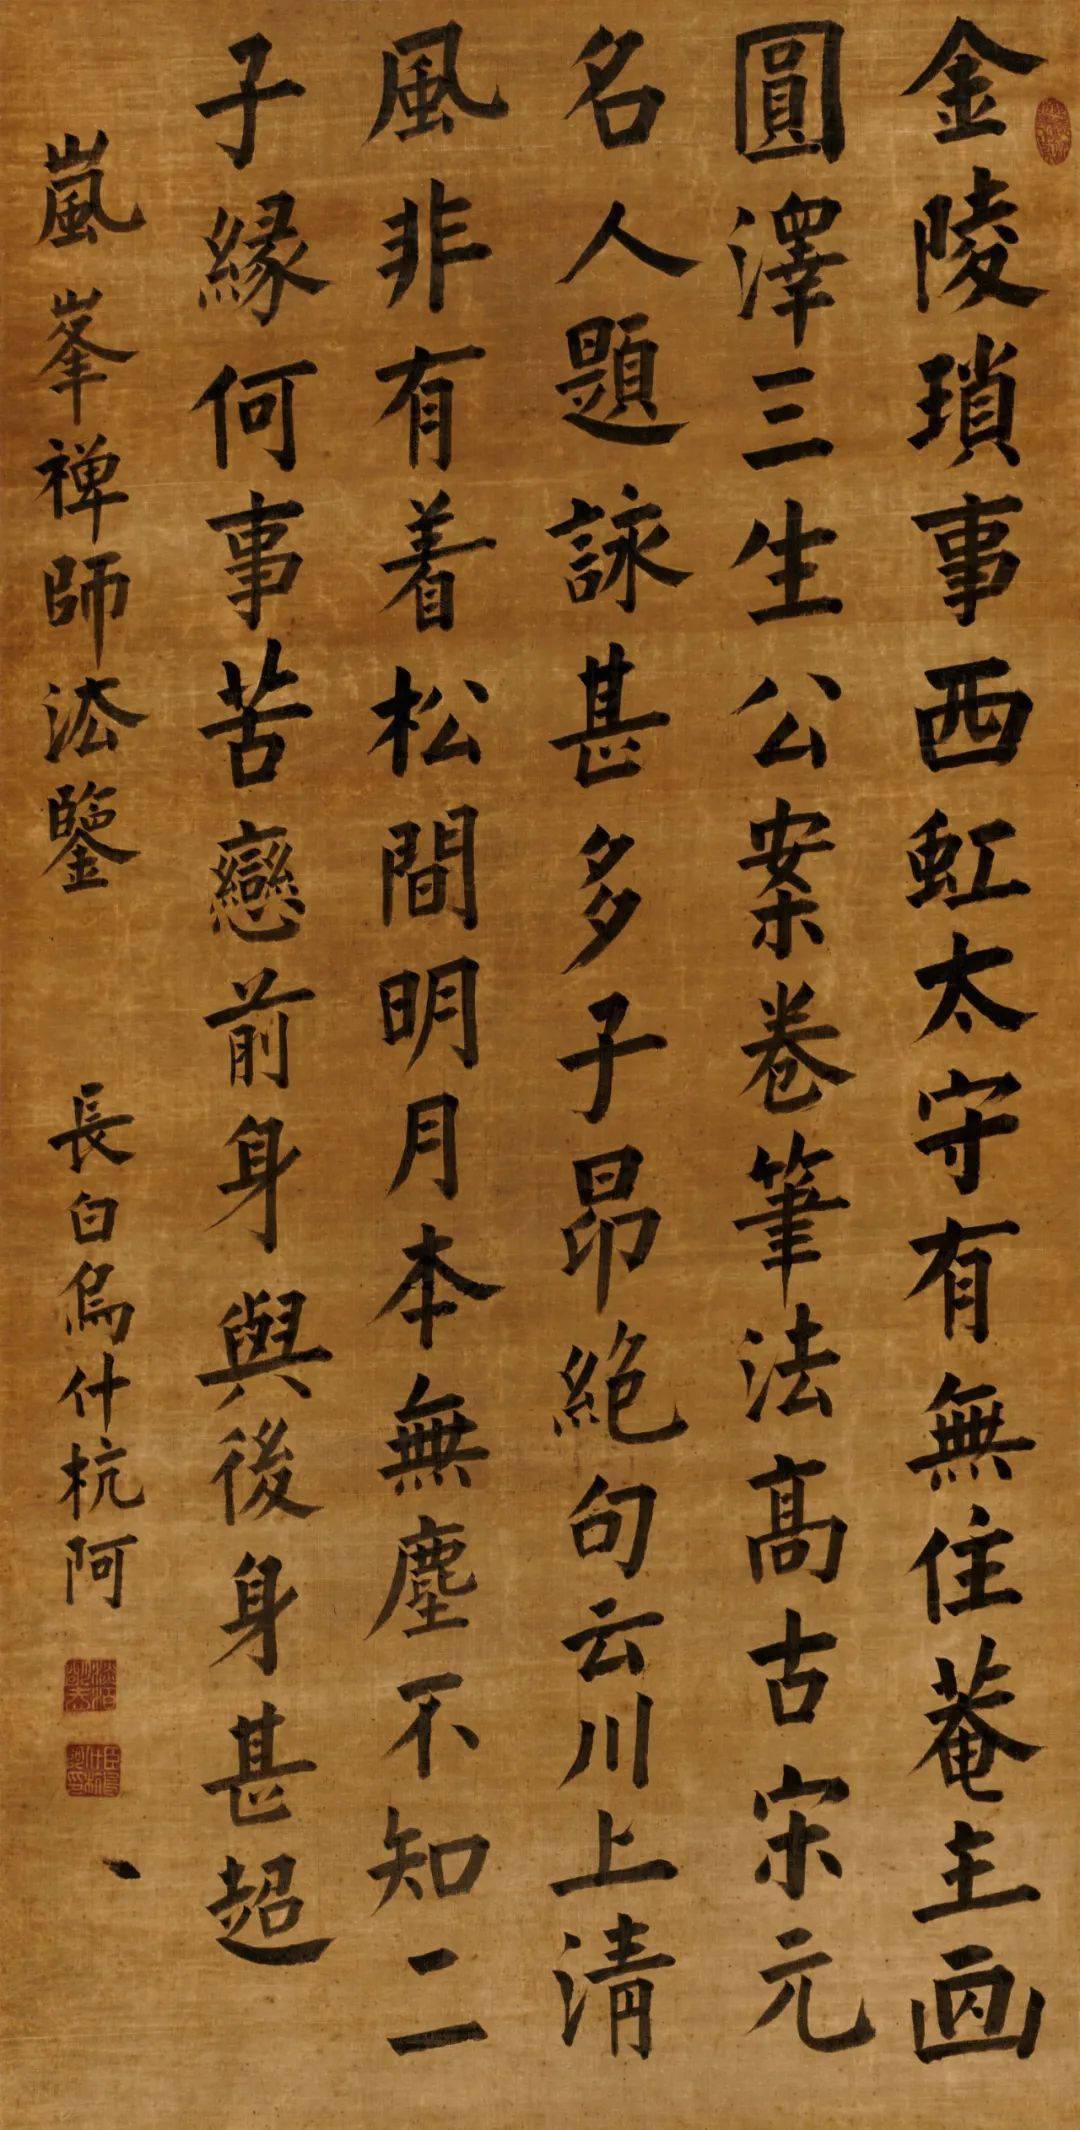 金陵瑣事西虹太守有無住菴主画
圓澤三生公案卷筆法高古宋元
名人題詠甚多子昂絶句云川上清
風非有着松間明月本無塵不知二
子緣何事苦戀前身與後身甚超
嵐峯禅師法鑒
長白烏什杭阿